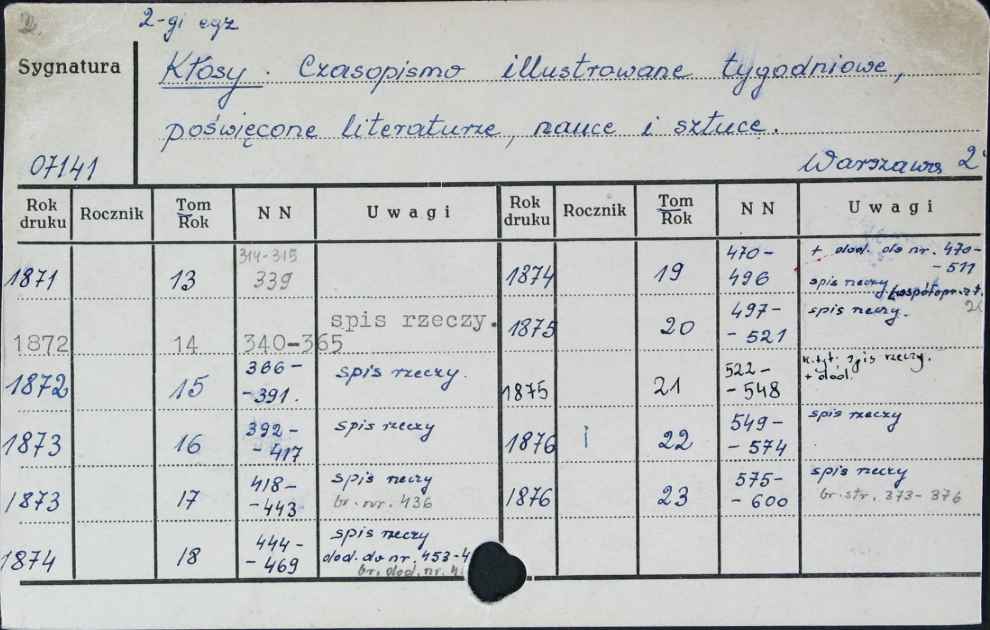 2.
2-gi egz
Sygnatura
Kłosy. Czasopismo illustrowane tygodniowe,
poświęcone literaturze, nauce i sztuce.
07141
Warszawa 2°
Rok druku Rocznik Tom Rok N N Uwagi Rok druku Rocznik Tom Rok N N Uwagi
1871 13 314-315 339
1874 19 470-496 + dod. do nr. 470-511 spis rzeczy
1872 14 340-365 spis rzeczy.
1875 20 497-521 spis rzeczy.
1872 15 366-391. spis rzeczy.
1875 21 522-548 k.tyt. spis rzeczy. + dod.
1873 16 392-417 spis rzeczy
1876 i 22 549-574 spis rzeczy
1873 17 418-443 spis rzeczy br. nr. 436
1876 23 575-600 spis rzeczy br. str. 373-376
1874 18 444-469 spis rzeczy dod. do nr. 453-4 br. dod. nr.